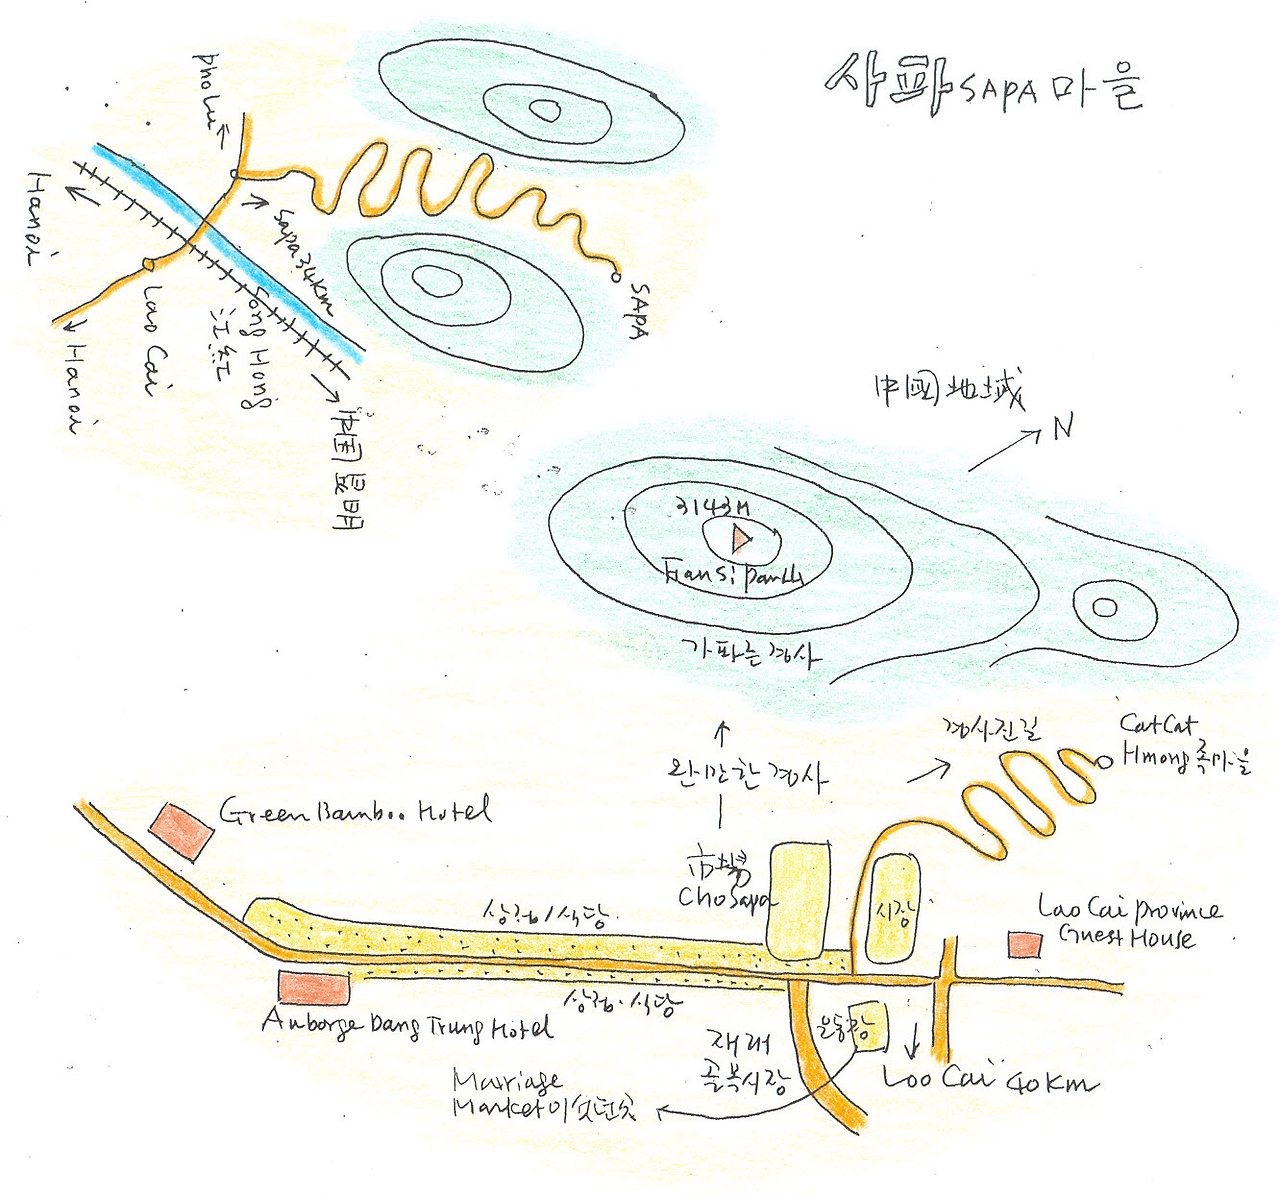 사파 SAPA 마을
Pho Lu
Hanoi
Sapa 34Km
SAPA
Song Hong
江紅
Lao Cai
Hanoi
中国昆明
中國地域
N
3143M
Fansipan
가파른경사
완만한경사
경사진길
CatCat
Hmong족마을
Green Bamboo Hotel
市場
Cho Sapa
시장
상점/식당
상점·식당
Lao Cai province
Guest House
Auborge Dang Trung Hotel
재래
골목시장
운동장
Loo Cai 40Km
Marriage
Market이섯던곳